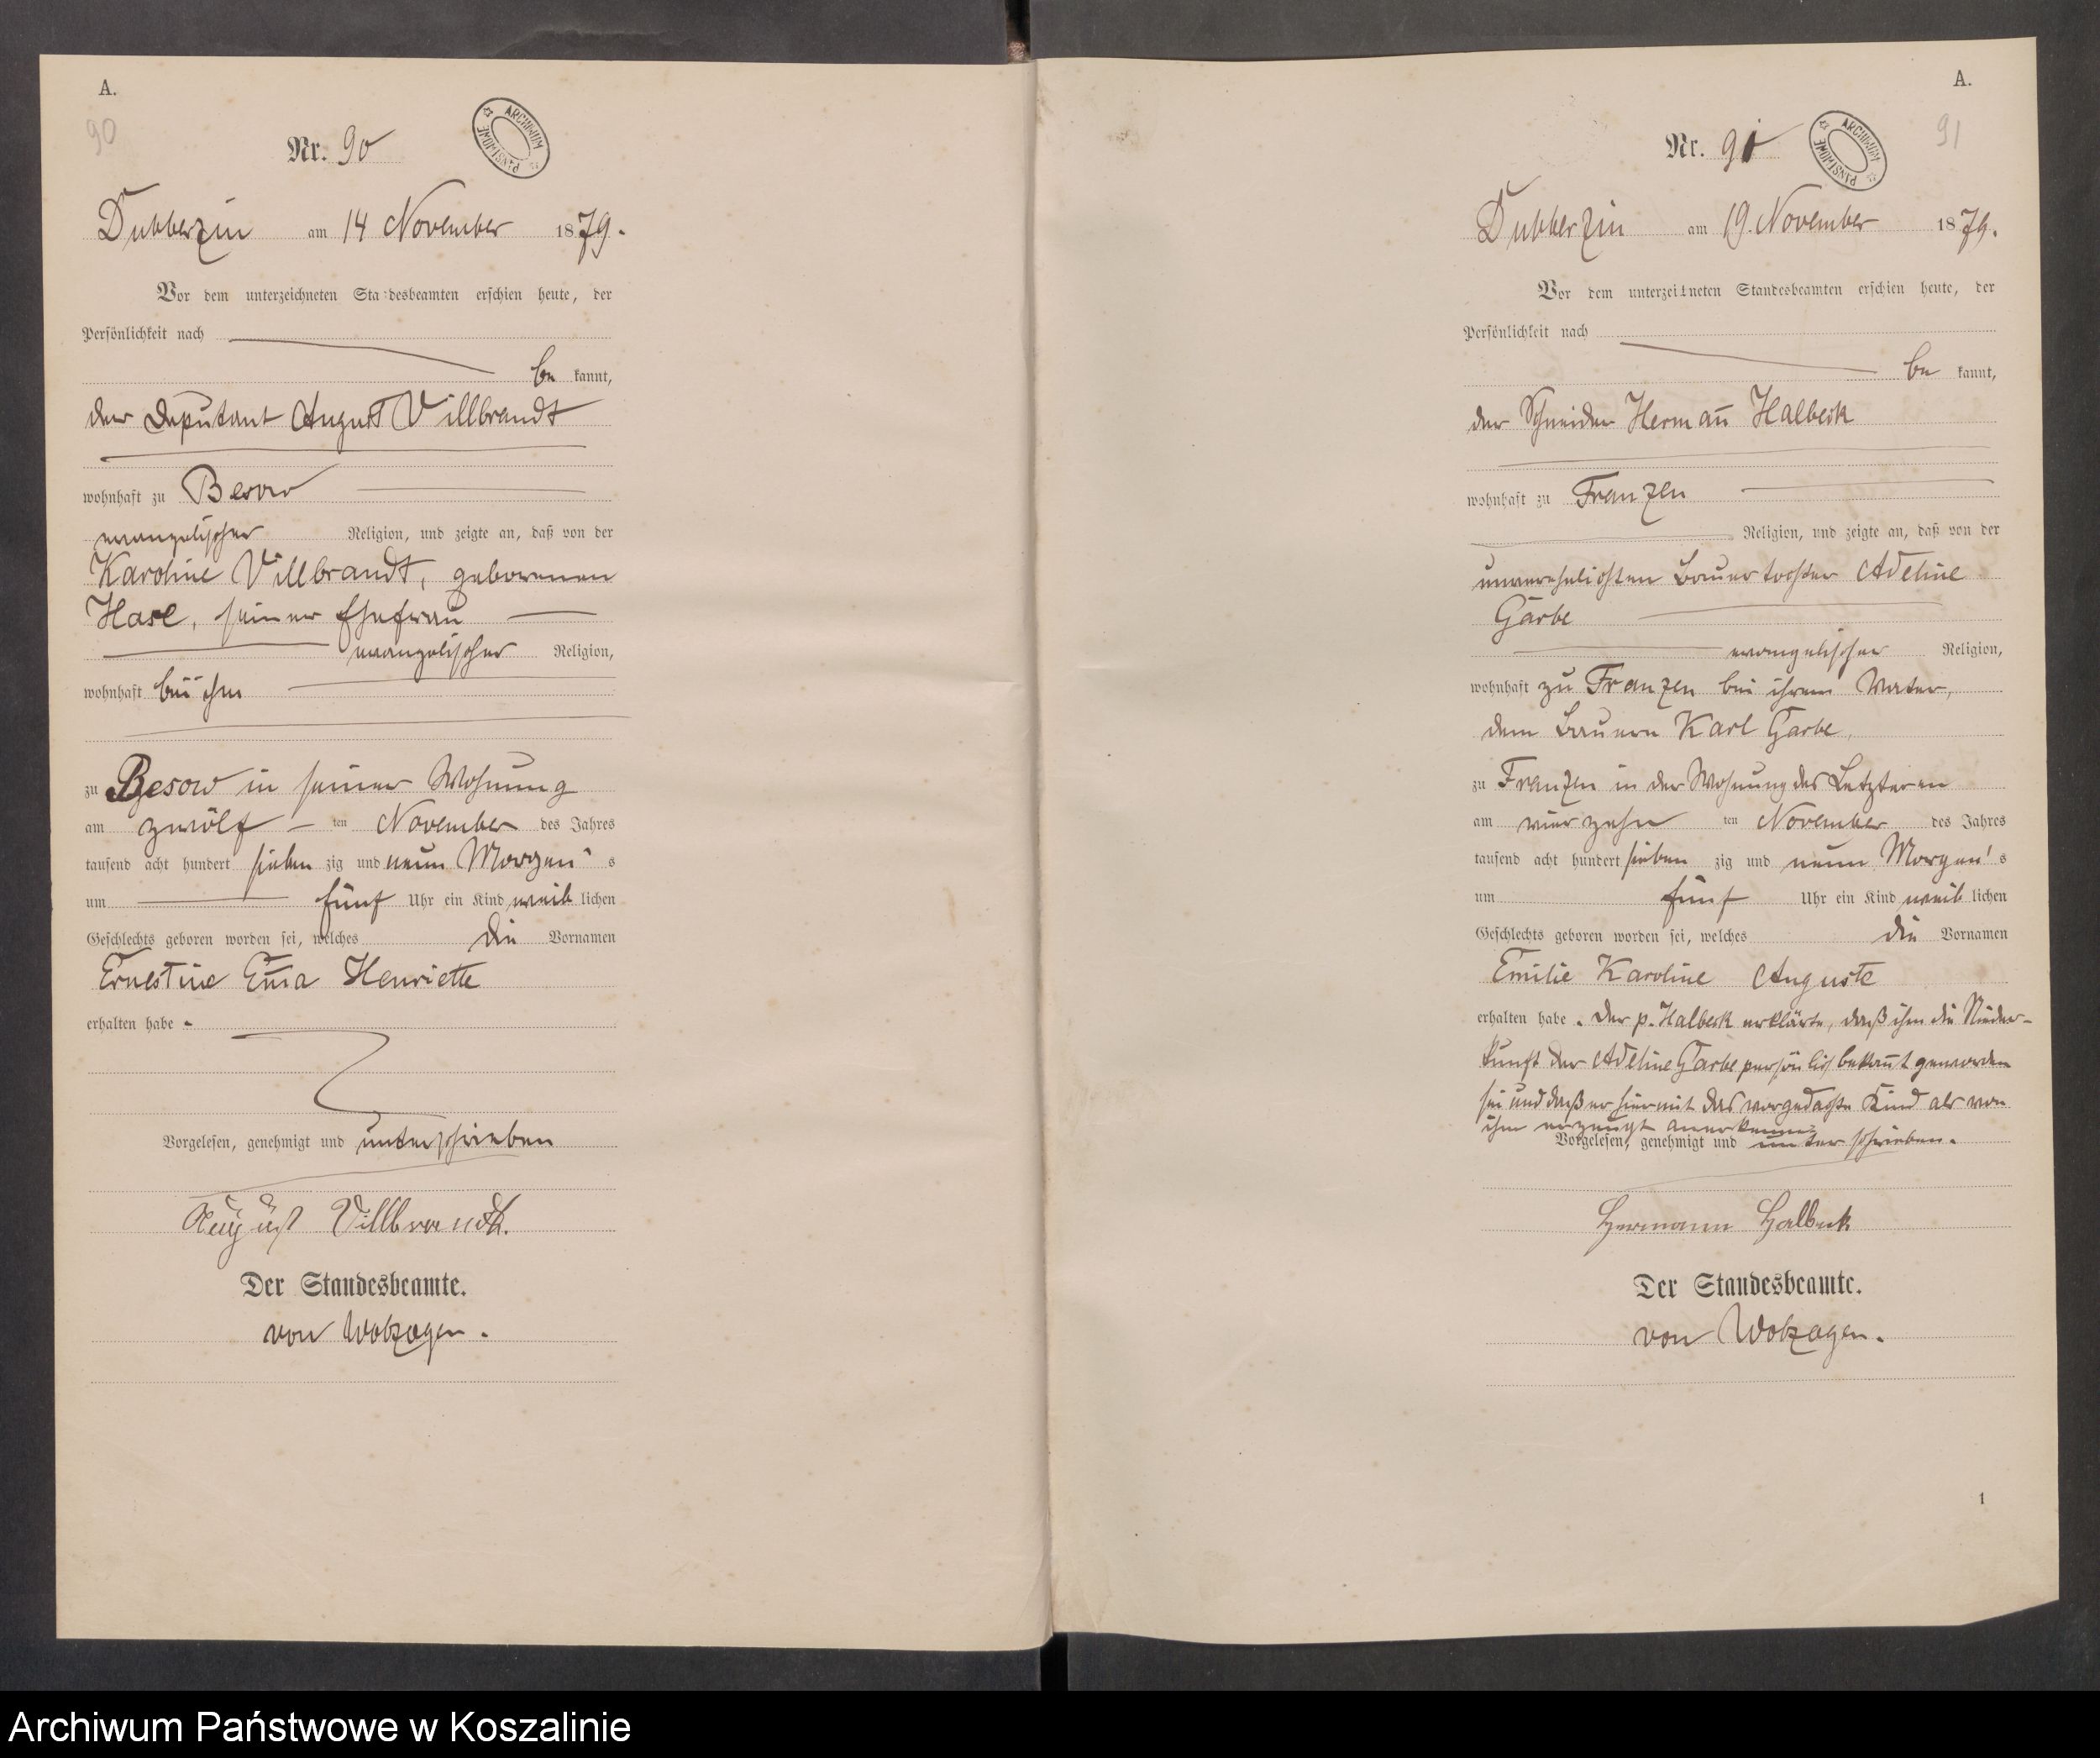 A.
90
Nr. 90
ARCHIWUM PAŃSTWOWE
Dubberzin am 14 November 1879.
Vor dem unterzeichneten Standesbeamten erschien heute, der
Persönlichkeit nach
be kannt,
der Deputant August Villbrandt
wohnhaft zu Besow
evangelischer Religion, und zeigte an, daß von der
Karoline Villbrandt, geborenen
Hase, seiner Ehefrau
evangelischer Religion,
wohnhaft bei ihm
zu Besow in seiner Wohnung
am zwölf ten November des Jahres
tausend acht hundert sieben zig und neun Morgen s
um fünf Uhr ein Kind weib lichen
Geschlechts geboren worden sei, welches die Vornamen
Ernestine Em̄a Henriette
erhalten habe.
Vorgelesen, genehmigt und unterschrieben
August Villbrandt.
Der Standesbeamte.
von Wolzogen.
A.
91
Nr. 91
ARCHIWUM PAŃSTWOWE
Dubberzin am 19. November 1879.
Vor dem unterzeichneten Standesbeamten erschien heute, der
Persönlichkeit nach
be kannt,
der Schneider Herman̄ Halbeck
wohnhaft zu Franzen
Religion, und zeigte an, daß von der
unverehelichten Bauertochter Adeline
Garbe
evangelischer Religion,
wohnhaft zu Franzen bei ihrem Vater,
dem Bauern Karl Garbe,
zu Franzen in der Wohnung des Letzteren
am vierzehn ten November des Jahres
tausend acht hundert sieben zig und neun Morgen's
um fünf Uhr ein Kind weib lichen
Geschlechts geboren worden sei, welches die Vornamen
Emilie Karoline Auguste
erhalten habe. Der p. Halbeck erklärte, daß ihm die Nieder-
kunft der Adeline Garbe persönlich bekan̄t geworden
sei und daß er hiermit das vorgedachte Kind als von
ihm erzeugt anerkenne
Vorgelesen, genehmigt und unterschrieben.
Hermann Halbeck
Der Standesbeamte.
von Wolzogen.
1
Archiwum Państwowe w Koszalinie